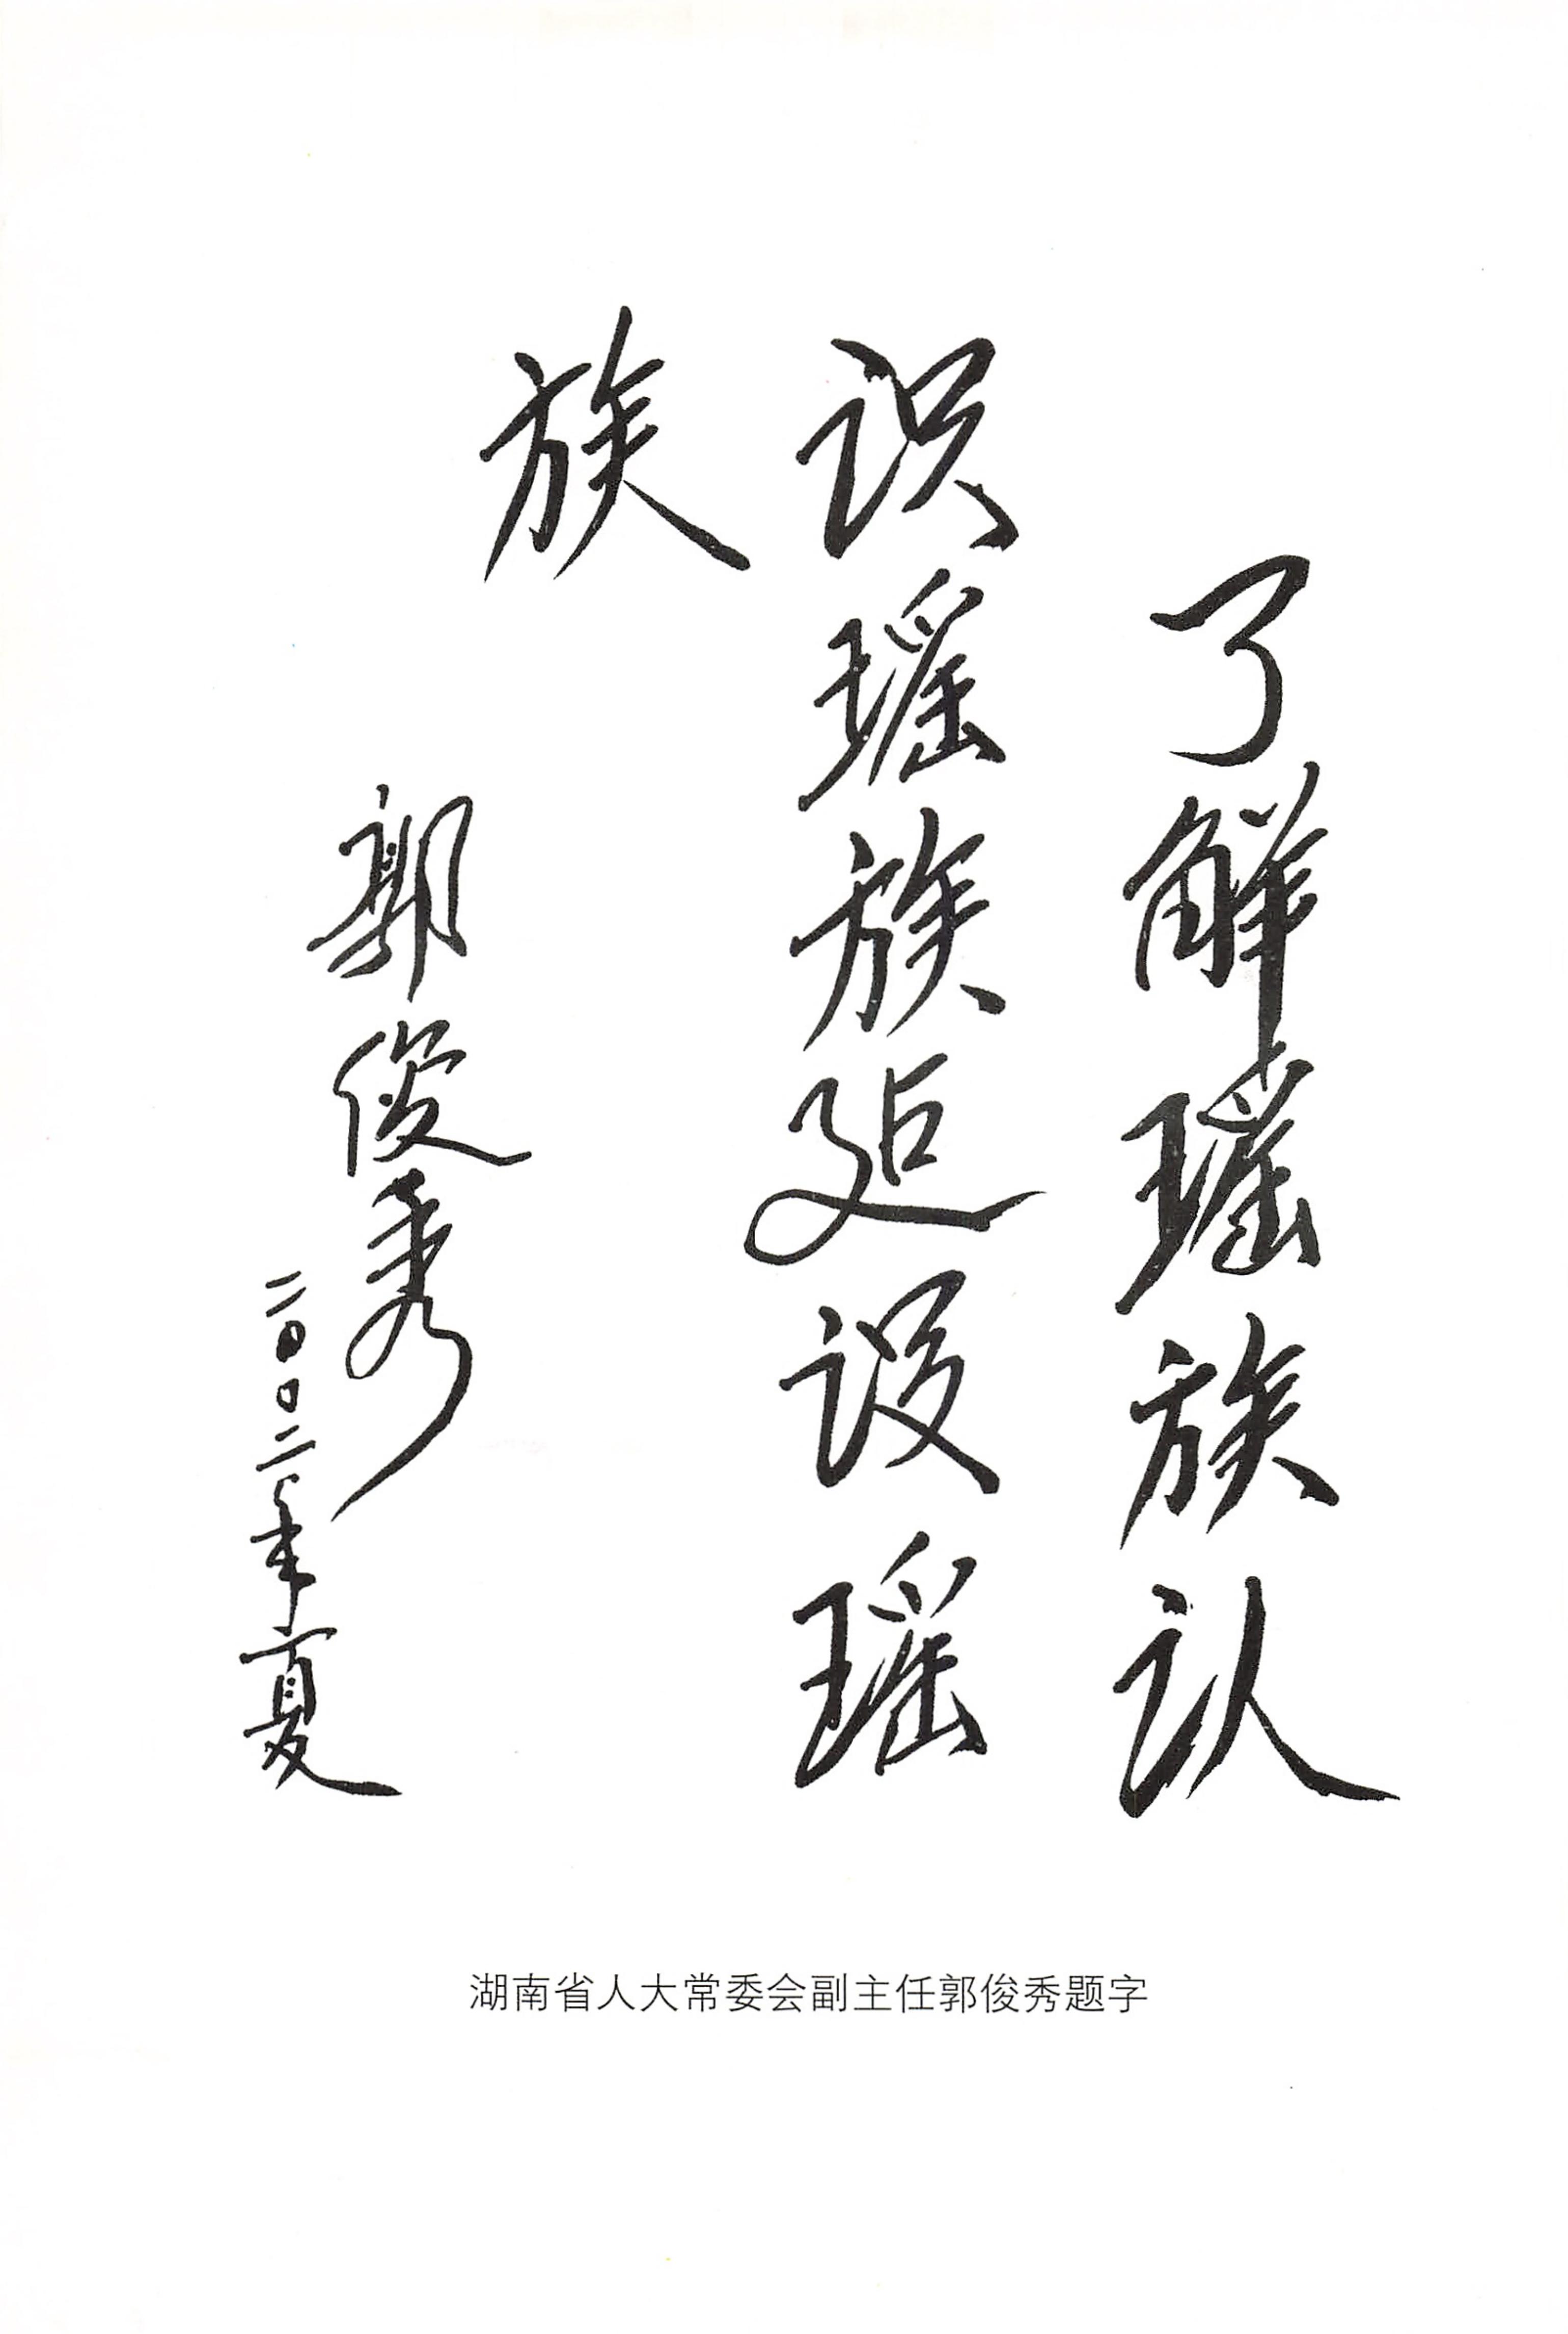 了解瑶族认
识瑶族建设瑶
族
郭俊秀
二〇〇二年夏
湖南省人大常委会副主任郭俊秀题字